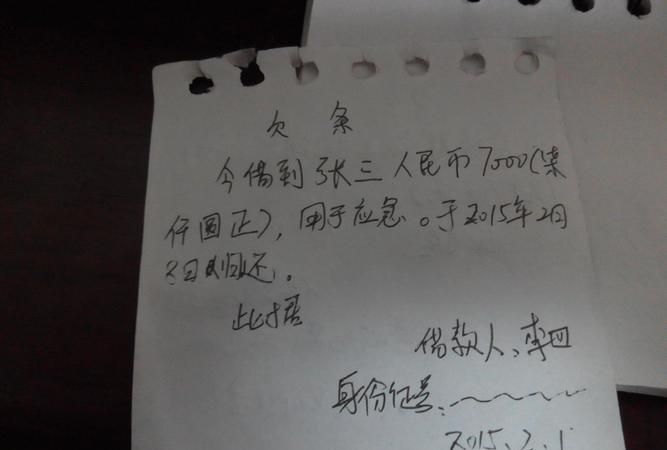 欠 条
今借到张三人民币7000(柒
仟圆正),用于应急。于2015年2月
8日归还。
此据
借款人:李四
身份证号:
2015.2.1